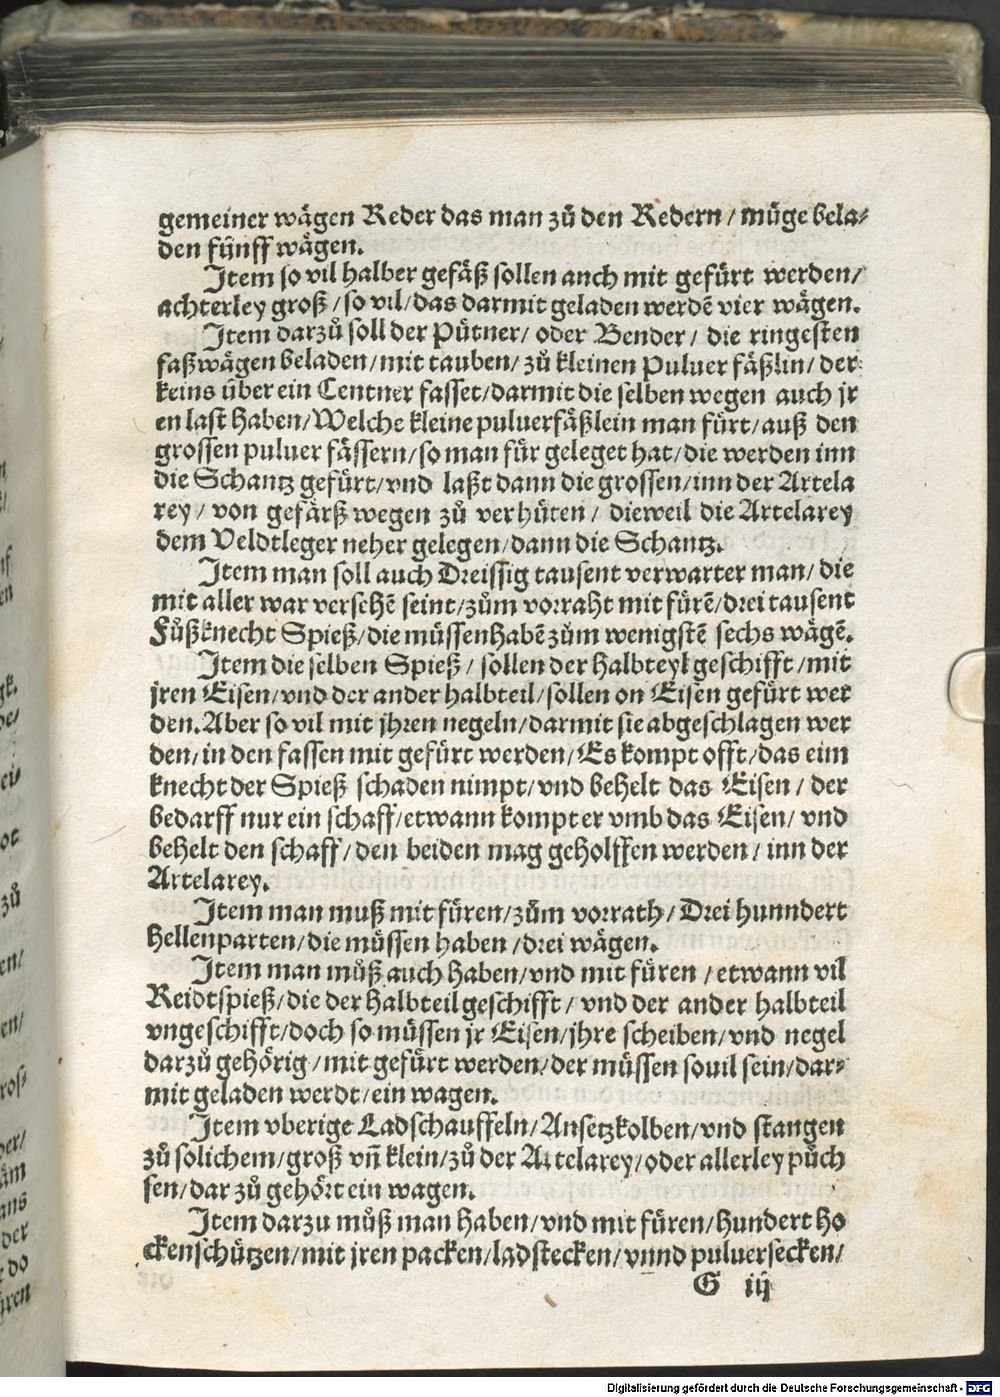 gemeiner wägen Reder das man zů den Redern / müge bela⸗
den fünff wägen.
Item so vil halber gefäß sollen auch mit gefürt werden/
achterley groß / so vil / das darmit geladen werdē vier wägen.
Item darzů soll der Pütner/ oder Bender / die ringesten
faßwägen beladen / mit tauben / zů kleinen Puluer fäßlin / der⸗
keins über ein Centner fasset/darmit die selben wegen auch jr
en last haben/Welche kleine puluerfäßlein man fürt/ auß den
grossen puluer fässern/so man für geleget hat/die werden inn
die Schantz gefürt/vnd laßt dann die grossen/inn der Artela
rey / von gefärß wegen zů verhüten / dieweil die Artelarey
dem Veldtleger neher gelegen/dann die Schantz.
Item man soll auch Dreissig tausent verwarter man/ die
mit aller war versehē seint/zům vorraht mit fürē/drei tausent
Fůßknecht Spieß/die müssen habē zům wenigstē sechs wägē.
Item die selben Spieß / sollen der halbteyl geschifft /mit
jren Eisen/vnd der ander halbteil/sollen on Eisen gefürt wer
den. Aber so vil mit jhren negeln/darmit sie abgeschlagen wer
den/in den fassen mit gefürt werden/Es kompt offt/das eim
knecht der Spieß schaden nimpt/vnd behelt das Eisen / der
bedarff nur ein schaff/etwann kompt er vmb das Eisen/ vnd
behelt den schaff/den beiden mag geholffen werden/ inn der
Artelarey.
Item man muß mit füren/zům vorrath/ Drei hunndert
Hellenparten/die müssen haben /drei wägen.
Item man můß auch haben/vnd mit füren /etwann vil
Reidtspieß/die der halbteil geschifft / vnd der ander halbteil
vngeschifft/doch so müssen jr Eisen/jhre scheiben/vnd negel
darzů gehörig /mit gefürt werden/der müssen souil sein/dar⸗
mit geladen werdt/ein wagen.
Item vberige Ladschauffeln/Ansetzkolben/vnd stangen
zů solichem/groß vñ klein/zů der Artelarey/oder allerley püch
sen/dar zů gehört ein wagen.
Item darzu můß man haben/vnd mit füren/hundert ho
ckenschützen/mit jren packen/ladstecken/vnnd puluersecken/
G iij
Digitalisierung gefördert durch die Deutsche Forschungsgemeinschaft - DFG